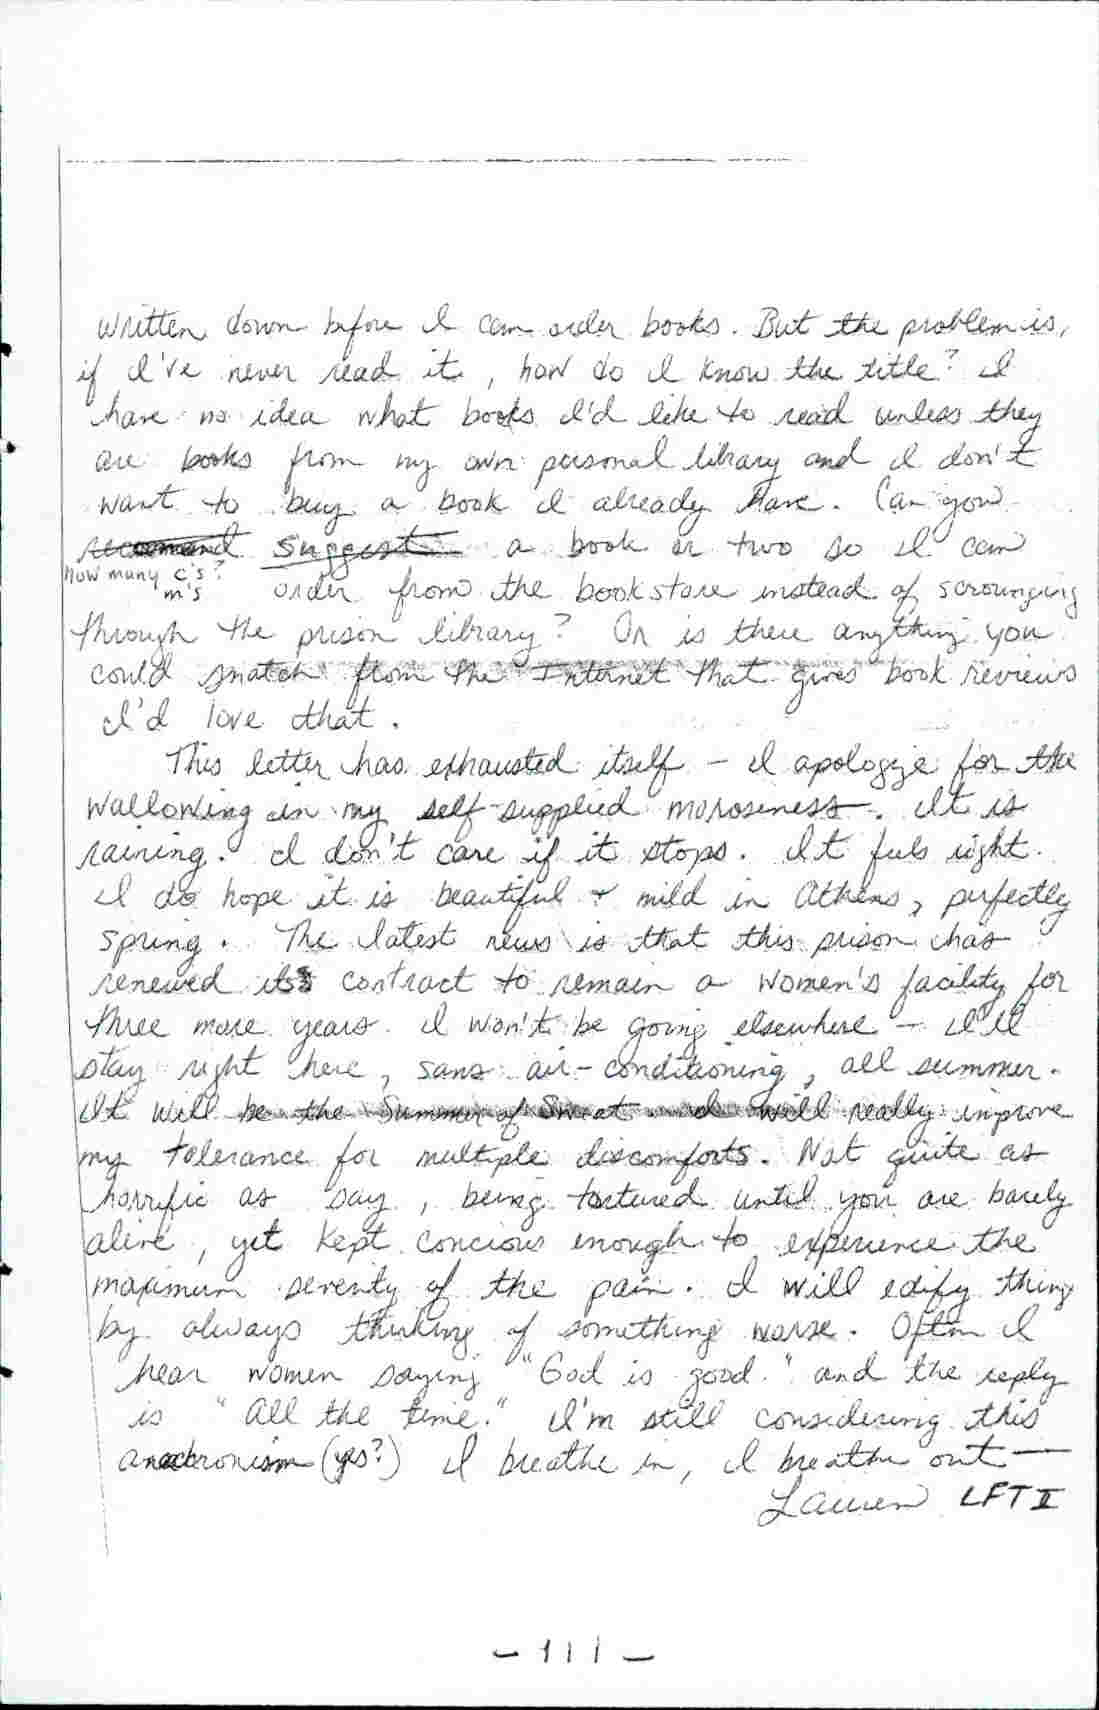 written down before I can order books. But the problem is,
if I've never read it, how do I know the title? I
have no idea what books I'd like to read unless they
are books from my own personal library and I don't
want to buy a book I already have. Can you
recomend suggest a book or two so I can
How many c's?
m's
order from the bookstore instead of scrounging
through the prison library? Or is there anything you
could snatch from the Internet that gives book reviews
I'd love that.
This letter has exhausted itself – I apologize for the
wallowing in my self-supplied moroseness. It is
raining. I don't care if it stops. It feels right.
I do hope it is beautiful & mild in Athens, perfectly
spring. The latest news is that this prison has
renewed its contract to remain a women's facility for
three more years. I won't be going elsewhere – I'll
stay right here, sans air-conditioning, all summer.
It will be the Summer of Sweat. I will really improve
my tolerance for multiple discomforts. Not quite as
horrific as say, being tortured until you are barely
alive, yet kept concious enough to experience the
maximum severity of the pain. I will edify things
by always thinking of something worse. Often I
hear women saying "God is good." and the reply
is "All the time." I'm still considering this
anachronism (yes?) I breathe in, I breathe out —
Lauren LFT II
- 111 -